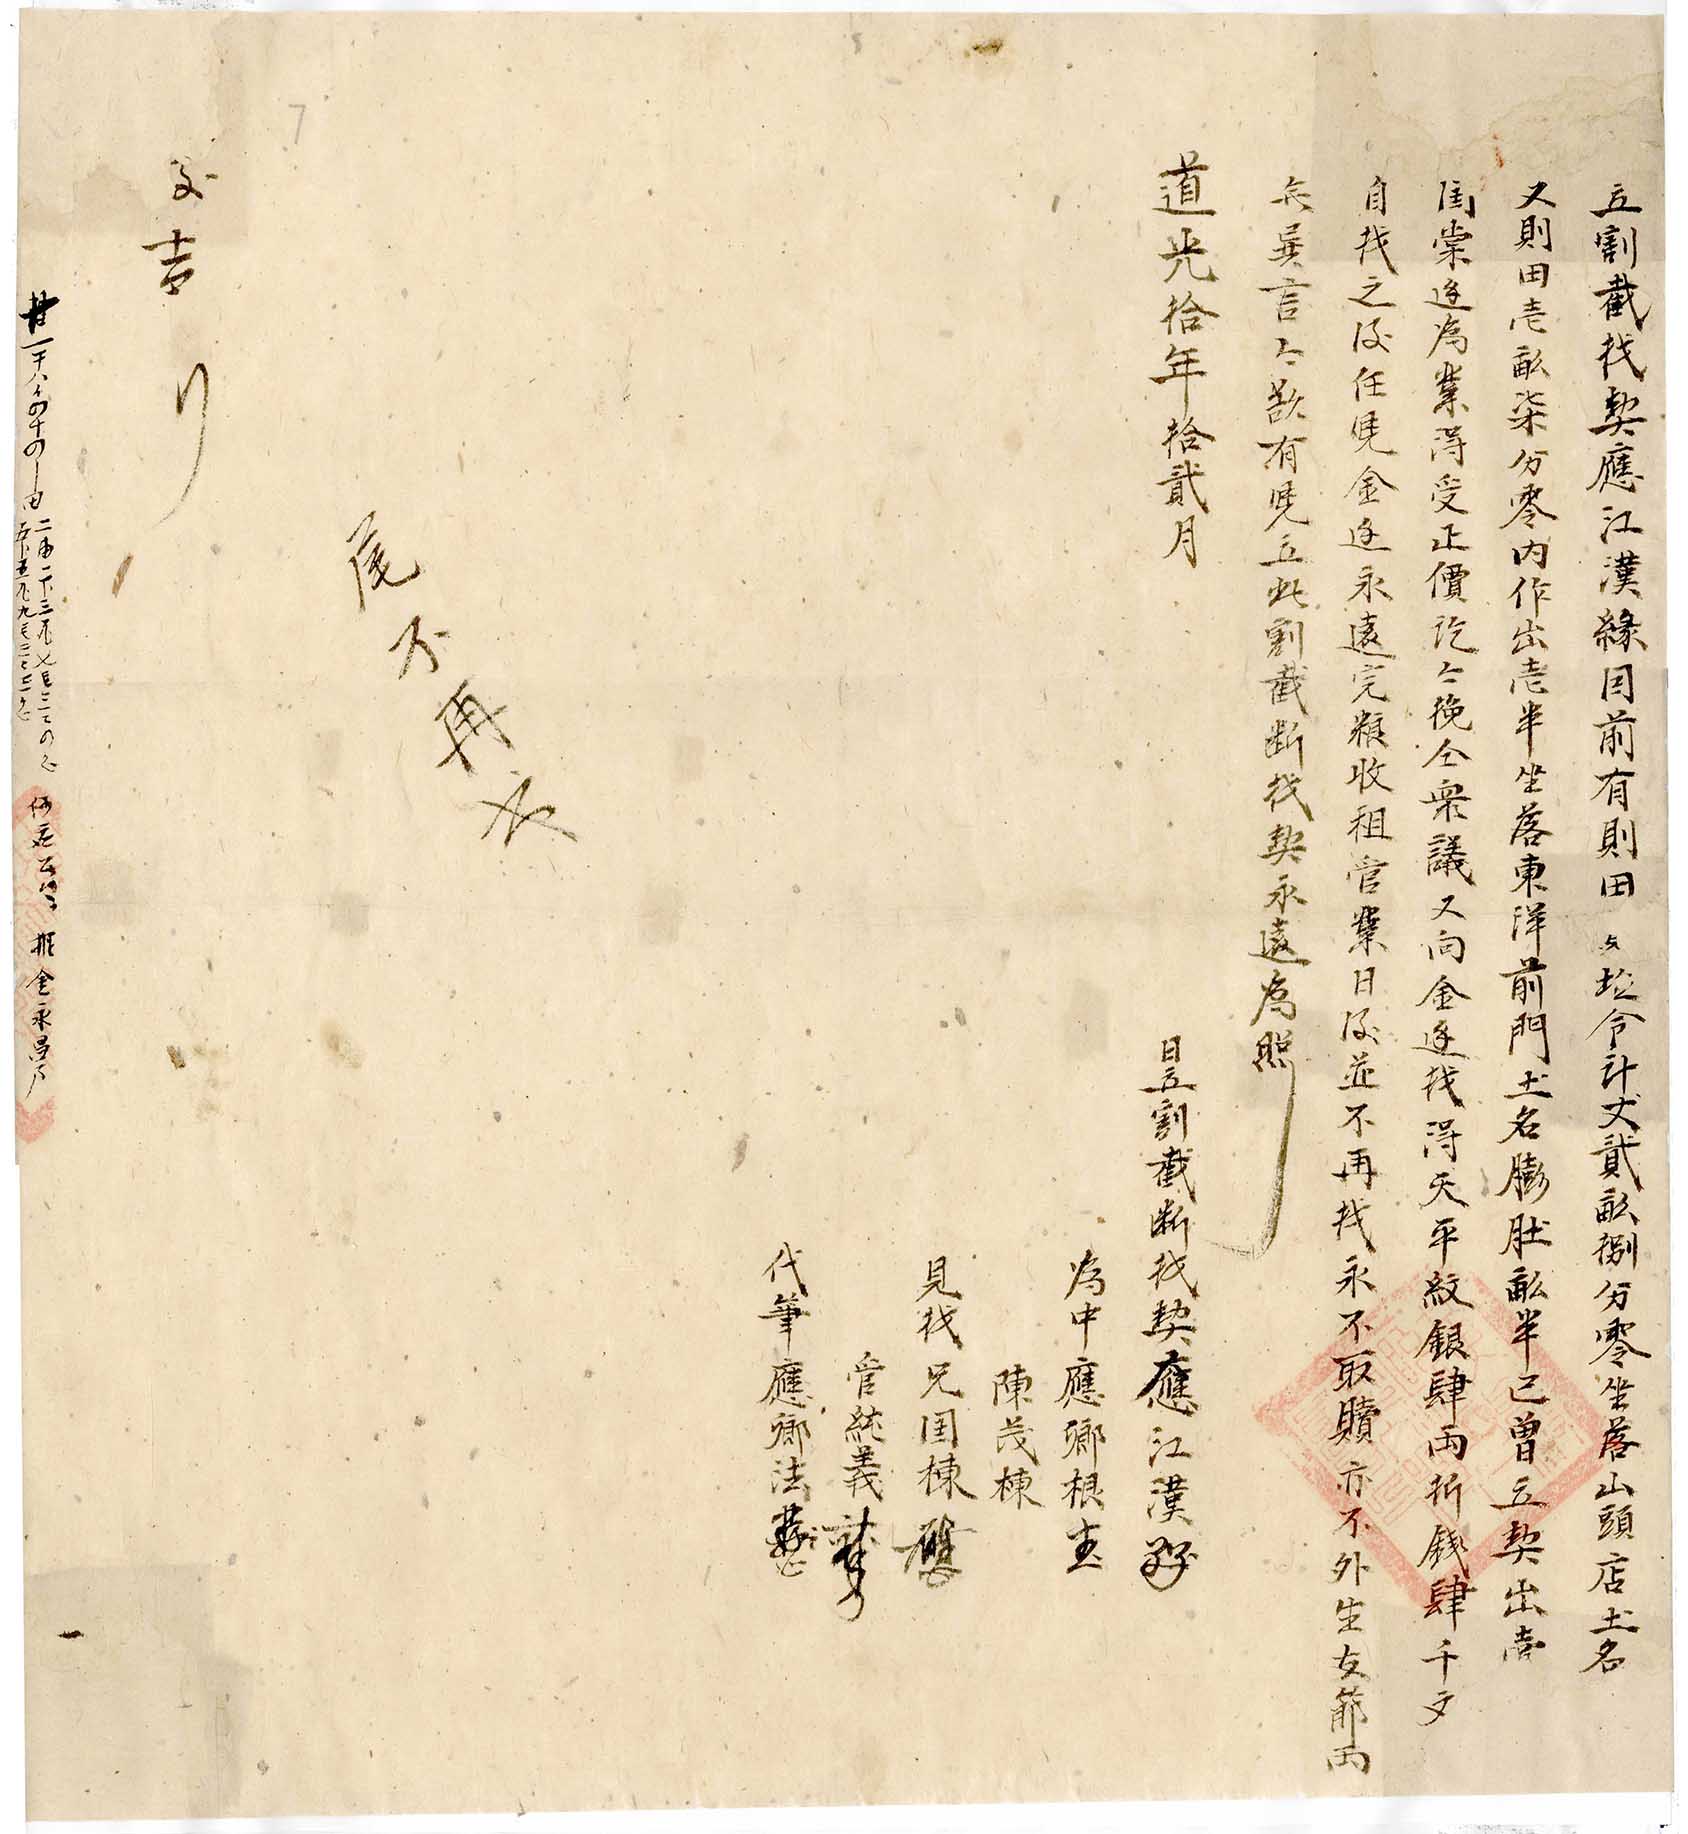 立割截找契應江漢緣因前有則田 坵令計丈貳畝捌分零坐落山頭店土名
又則田壱畝柒分零內作出壱半坐落東洋前門土名膨肚畝半已曾立契出
為業得受正價訖今挽仝衆議又向金 找得天平紋銀肆両折錢肆千文
自找之後任凴金 永遠完粮收租官業日後並不再找永不取贖亦不外生支節両
無異言今欲有凴立此割截断找契永遠為照
道光拾年拾貳月
日立割截断找契應江漢
為中應鄉根
陳茂棟
見找兄国棟
官統義
代筆應鄉法
尾不再
吉
金永昌戶